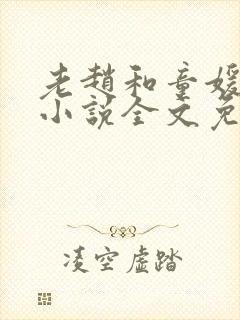 老趙和童媛
小說全文免
凌空虛踏